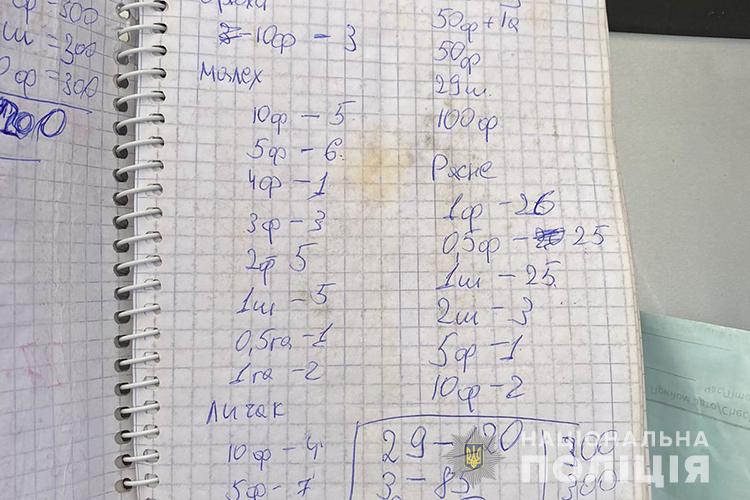 ф-500
ш=300
0ф=300
200
10ф - 3
малех
10ф - 5
5ф - 6
4ф - 1
3ф - 3
2ф 5
1ш - 5
0,5га - 1
1га - 2
личак
10ф - 4
5ф - 7
50ф+1а
50ф
29ш
100ф
Рясне
1ф - 26
0,5ф - 25
1ш - 25
2ш - 3
5ф - 1
10ф - 2
29 - 20
300
3 - 85
300
НАЦІОНАЛЬНА
ПОЛІЦІЯ